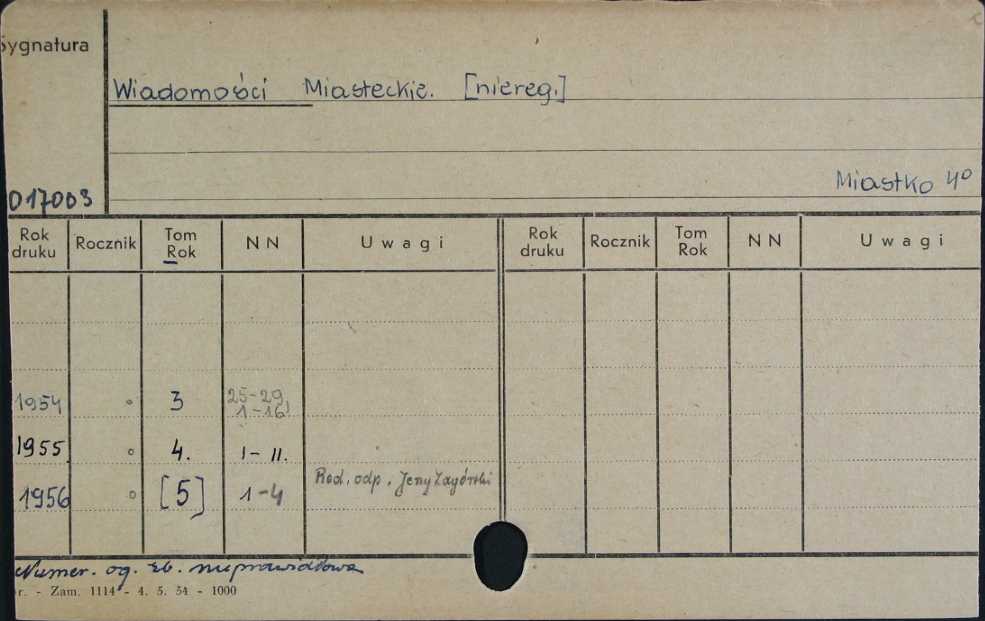 Sygnatura
Wiadomości Miasteckie. [niereg.]
Miastko 4°
017003
Rok druku Rocznik Tom Rok NN Uwagi Rok druku Rocznik Tom Rok NN Uwagi
1954 3 25-29,
1-16
1955 4. 1-11.
1956 [5] 1-4 Red. odp. Jerzy Zagórski
Numer. og. zb. nieprawidłowa
r. - Zam. 1114 - 4. 5. 54 - 1000